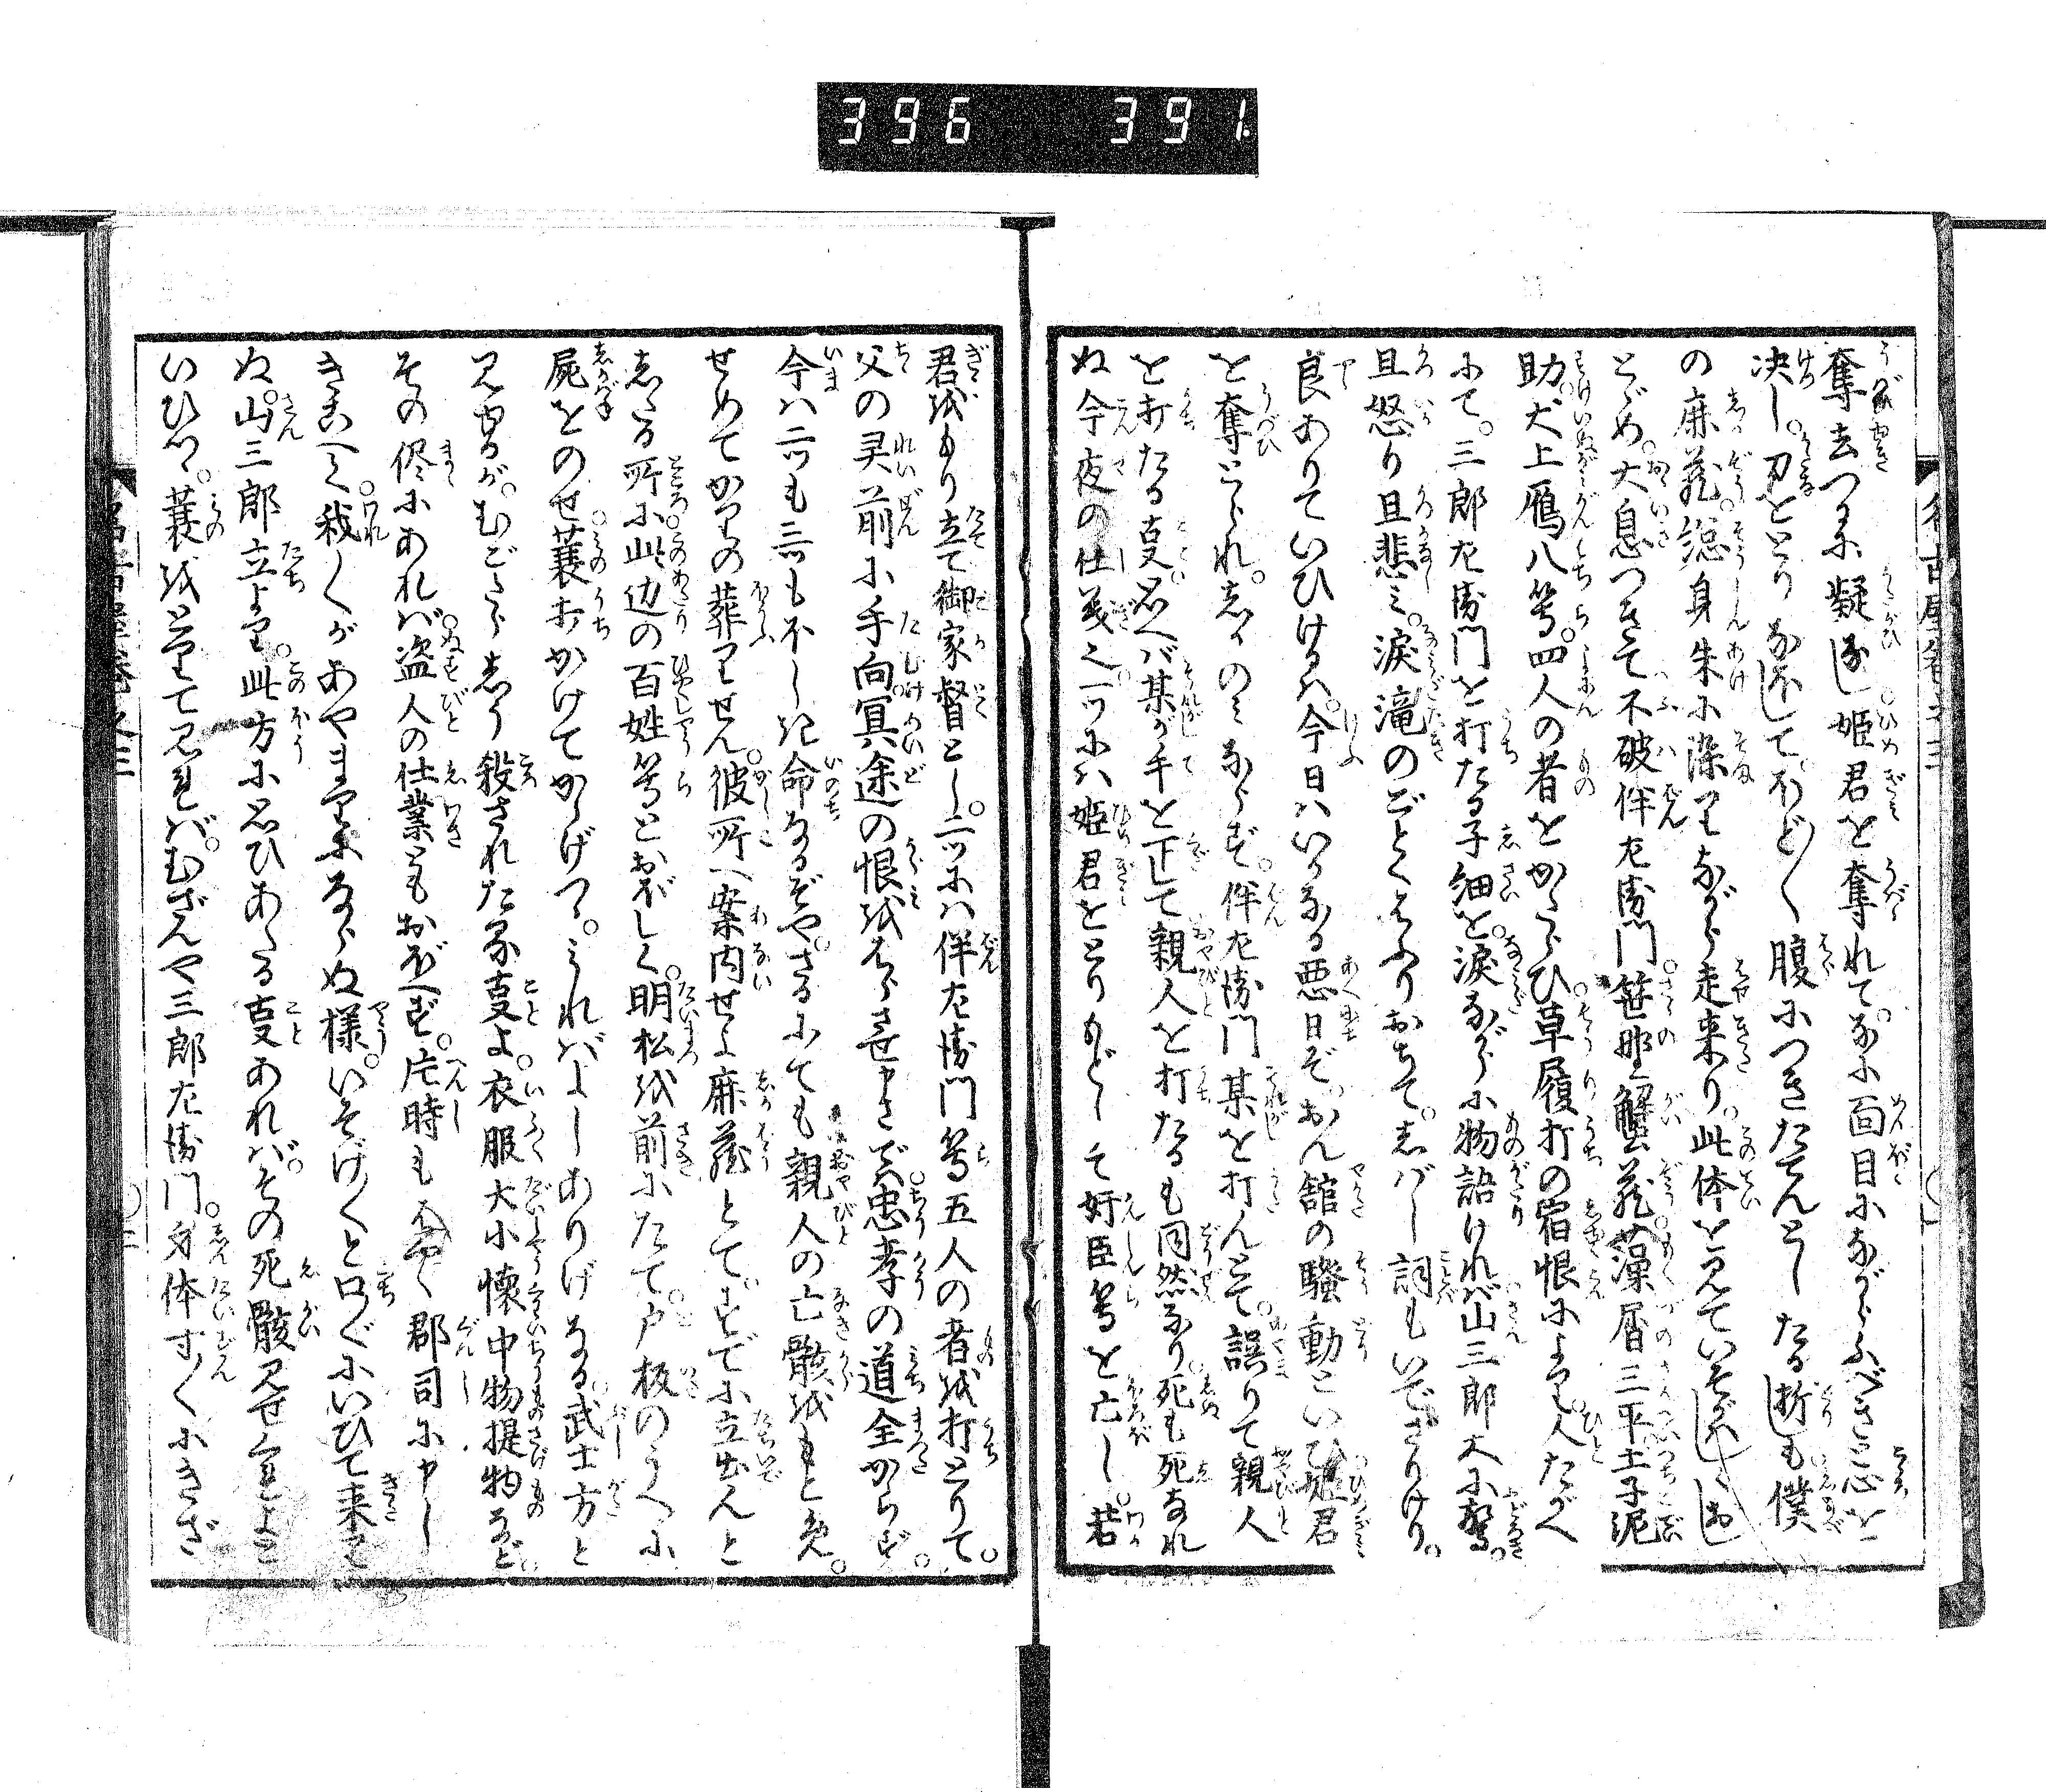 396 391
奪去つるに疑なし姫君を奪れて。なに面目にながらふべきと心を
決し。刀をとりなほして。ほど〱腹につきたてんとしたる折しも僕
の麻蔵。総身朱に染りながら走来り。此体を見ていそがはしくおし
とゞめ。大息つきて不破伴左衛門。笹野蟹蔵。藻屑三平土子泥
助。犬上雁八等。四人の者をかたらひ草履打の宿恨により。人たがへ
にて。三郎左衛門を打たる子細を。涙ながらに物語ければ山三郎大に驚。
且怒り且悲み。涙滝のごとくはふりおちて。しばし詞もいでざりけり。
良ありていひけるは。今日はいかなる悪日ぞ。おん舘の騒動といひ姫君
を奪とられ。しかのみならず。伴左衛門某を打んとて。誤りて親人
を打たる事。思へば某が手を下して親人を打たるも同然なり。死も死なれ
ぬ今夜の仕義。一ッには姫君をとりもどして奸臣等を亡し。若
君をもり立て御家督とし。二ッには伴左衛門等五人の者を打とりて。
父の灵前に手向冥途の恨をはらさせ申さでは忠孝の道全からず。
今は二ッも三ッもほしき命なるぞや。さるにても親人の亡骸をもとめ。
せめてかりの葬りせん。彼所へ案内せよ麻蔵とて。すでに立出んと
したる所に。此辺の百姓等とおぼしく。明松を前にたて。戸板のうへに
屍をのせ。蓑打かけてかゝげつゝ。これはよしありげなる。武士方と
見ゆるが。むごたらしう殺されたる事よ。衣服大小懐中物提物など。
その侭にあれば。盗人の仕業ともおぼへず。片時もはやく郡司に申し
きこへん。我〱があやまりにならぬ様。いそげ〱と口〲にいひて来り
ぬ。山三郎立より。此方に思ひあたる事あれば。その死骸見せくれよと
いひつゝ。蓑をとりて見れば。むざんや三郎左衛門。身体寸〱にきざ